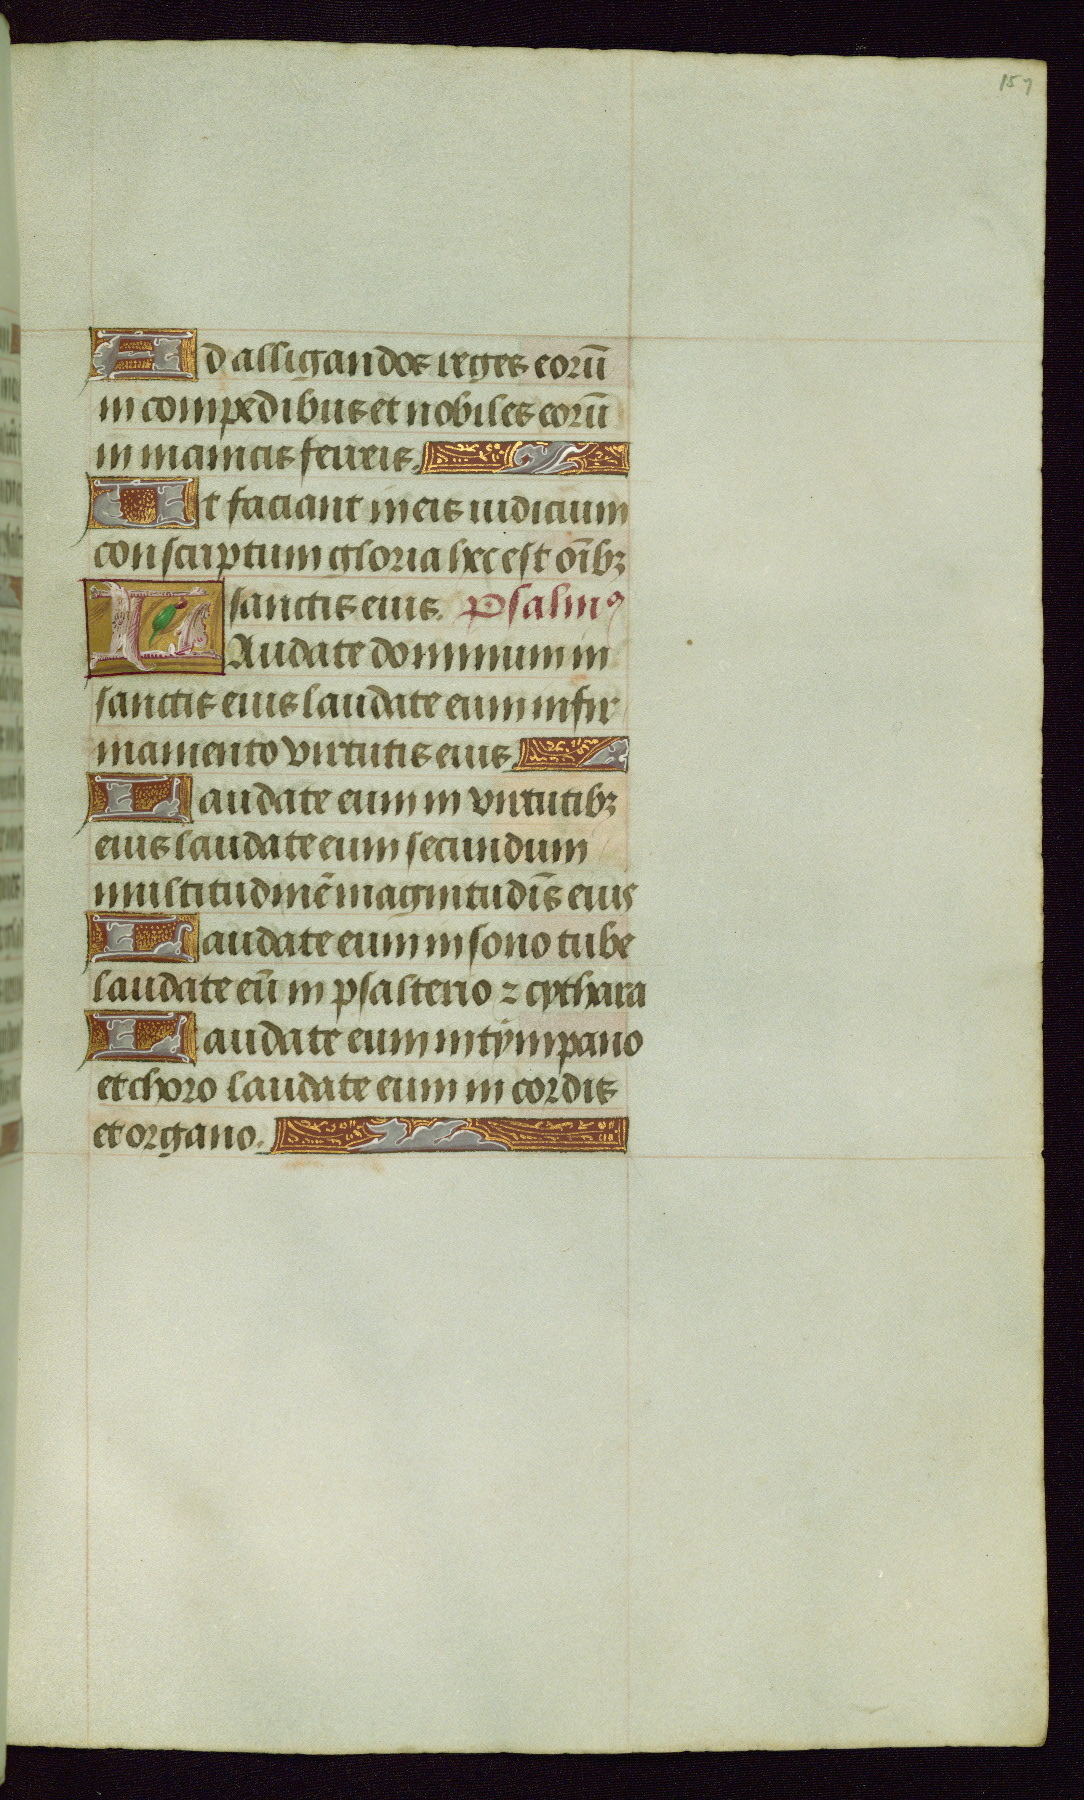 157
Ad alligandos reges eorū
in compedibus et nobiles eorū
in manicis ferreis.
Et faciant in eis iudicium
conscriptum gloria hec est oībꝫ
sanctis eius. Psalmꝰ
LAudate dominum in
sanctis eius laudate eum in fir
mamento virtutis eius.
Laudate eum in virtutibꝫ
eius laudate eum secundum
multitudinē magnitudīs eius
Laudate eum in sono tube
laudate eū in psalterio ⁊ cythara
Laudate eum in tympano
et choro laudate eum in cordis
et organo.